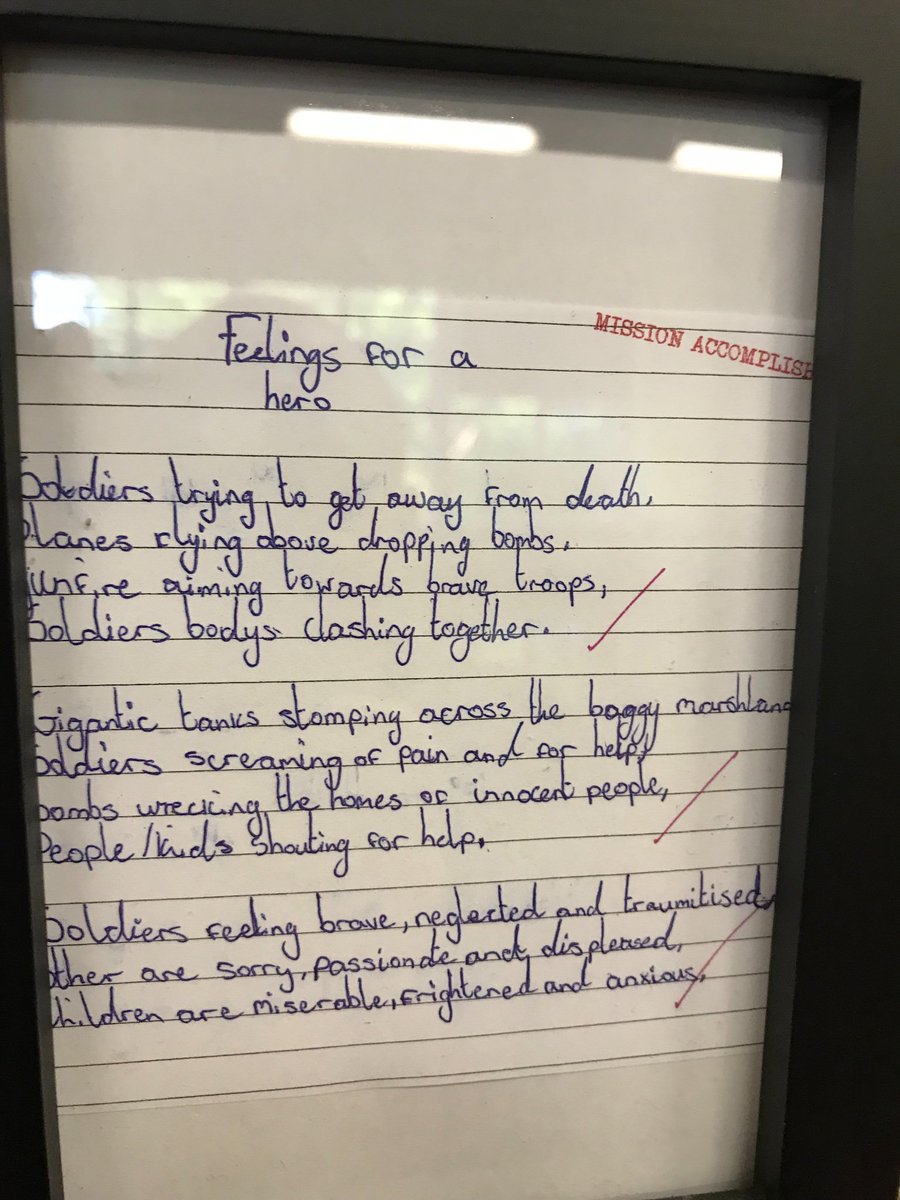 Feelings for a
hero
MISSION ACCOMPLISH
Soldiers trying to get away from death.
Planes flying above dropping bombs.
Gunfire aiming towards brave troops,
Soldiers bodys clashing together.
Gigantic tanks stomping across the boggy marshland
Soldiers screaming of pain and for help,
bombs wrecking the homes of innocent people,
People/kids shouting for help.
Soldiers feeling brave, neglected and traumitised,
other are sorry, passionate and displeased,
children are miserable, frightened and anxious,